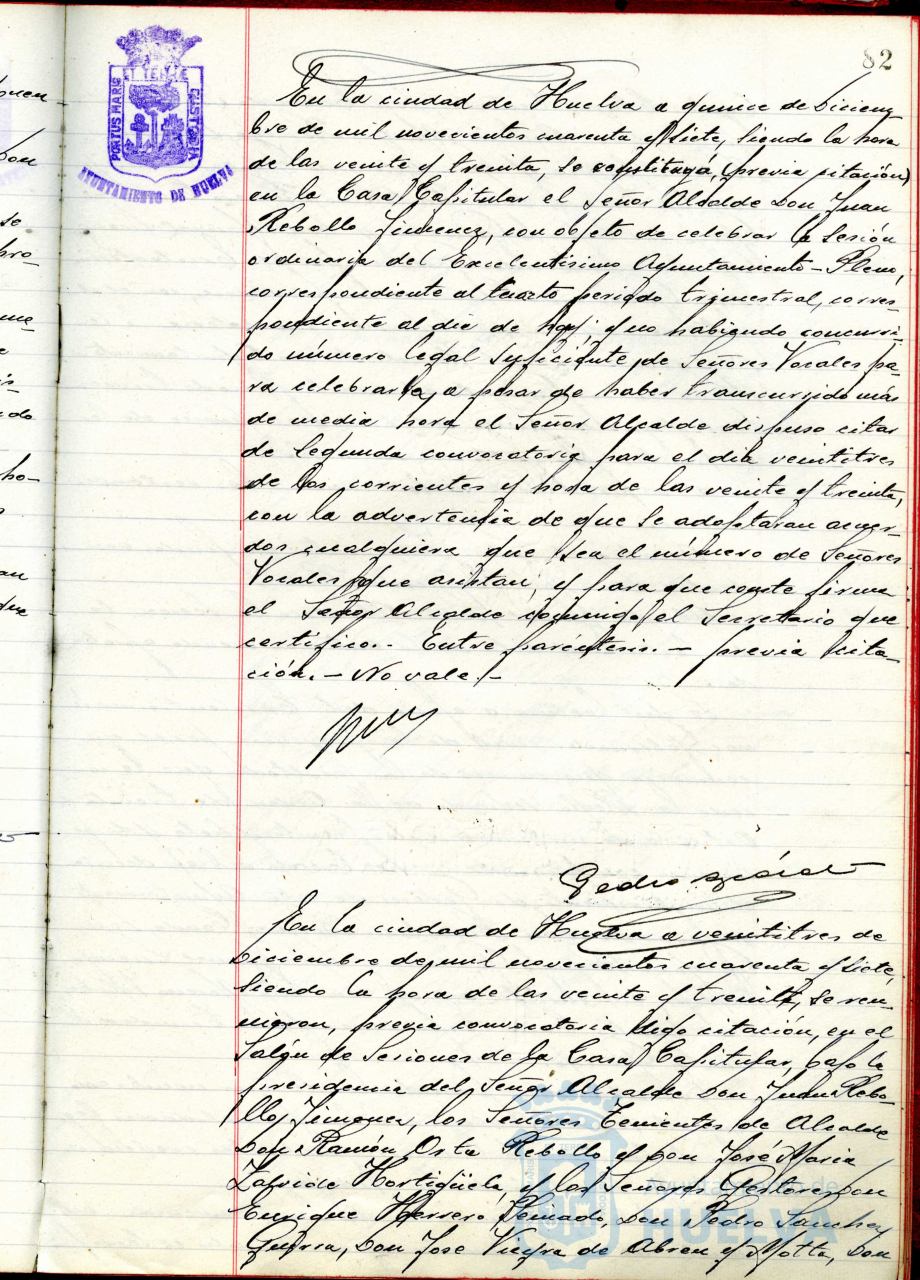 82
PORTUS MARIS
ET TERRE
CUSTODIA
AYUNTAMIENTO DE HUELVA
En la ciudad de Huelva a quince de Diciem
bre de mil novecientos cuarenta y siete, siendo la hora
de las veinte y treinta, se constituyó, (previa citación)
en la Casa Capitular el Señor Alcalde Don Juan
Rebollo Jimenez, con objeto de celebrar la sesión
ordinaria del Excelentisimo Ayuntamiento-Pleno,
correspondiente al cuarto periodo trimestral, corres-
pondiente al dia de hoy; y no habiendo concurri-
do número legal suficiente de Señores Vocales pa-
ra celebrarla, a pesar de haber transcurrido más
de media hora el Señor Alcalde dispuso citar
de segunda convocatoria para el dia veintitres
de los corrientes y hora de las veinte y treinta,
con la advertencia de que se adoptaran acuer-
dos cualquiera que sea el número de Señores
Vocales que asistan; y para que conste firma
el Señor Alcalde conmigo el Secretario que
certifico.- Entre paréntesis.- previa cita-
ción.- No vale.-
Pedro
En la ciudad de Huelva a veintitres de
Diciembre de mil novecientos cuarenta y siete,
siendo la hora de las veinte y treinta, se reu-
nieron, previa convocatoria digo citación, en el
Salón de Sesiones de la Casa Capitular, bajo la
presidencia del Señor Alcalde Don Juan Rebo-
llo Jimenez, los Señores Tenientes de Alcalde
Don Ramón Orta Rebollo y Don José Maria
Lafride Hortigüela, y los Señores Gestores Don
Enrique Herrero Don Pedro Sanchez
Guerra, Don José Vieyra de Abreu y Motta, Don
Ayuntamiento de
HUELVA